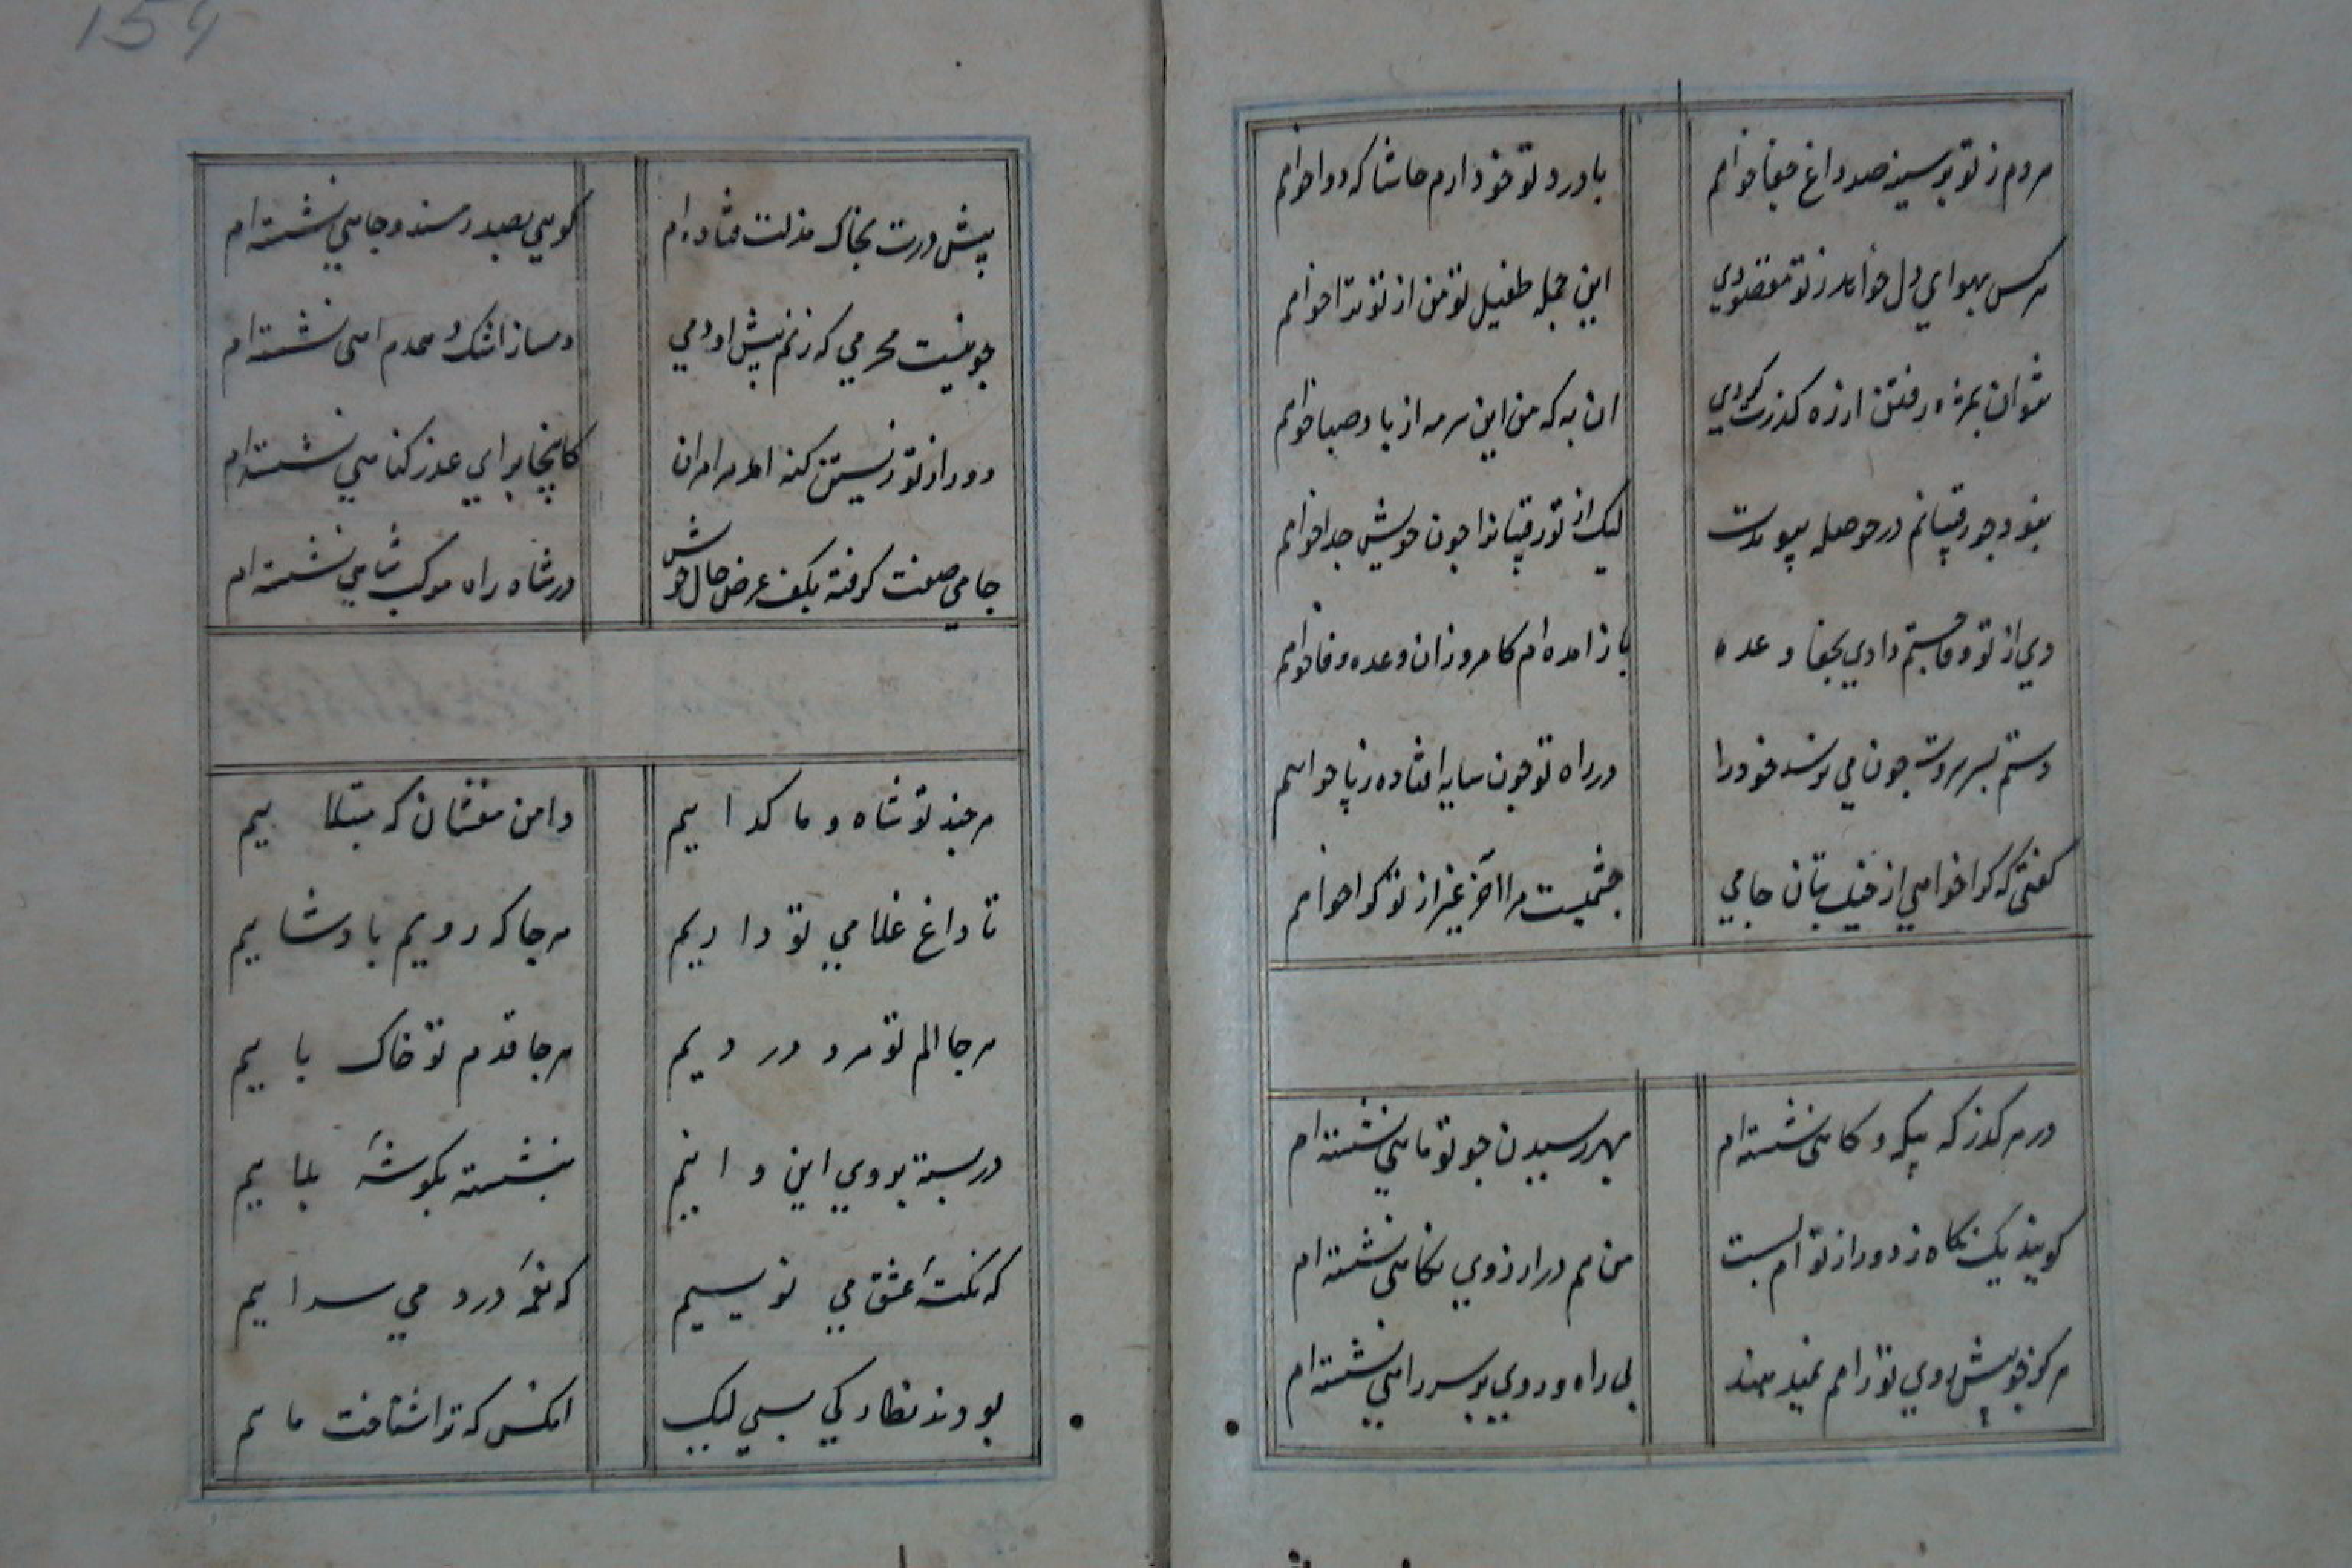 هر دم ز تو بر سینه صد داغ جفا خواهم
با درد تو خو دارم حاشا که دوا خواهم
هر کس بهوای دل خواهد ز تو مقصودی
این جمله طفیل تو من از تو ترا خواهم
نتوان بمژه رفتن از ره گذرت گردی
ان به که من این سرمه از باد صبا خواهم
نبود جور رقیبانم در حوصله پیوندت
لیک از تو رقیبانرا چون خویش جدا خواهم
دی از تو وفا جستم دادی بجفا وعده
باز امده ام کامروز ان وعده وفا خواهم
دستم بسر سروت چون می نرسد خود را
در راه تو چون سایه افتاده ز پا خواهم
گفتی که کرا خواهی از خیل بتان جامی
چشمیست مرا آخر غیر از تو کرا خواهم
در هر گذر که پیکه و گاهی نشسته ام
بهر رسیدن چو تو ماهی نشسته ام
گویند یک نگاه ز دور از تو ام بست
من هم در ارزوی نگاهی نشسته ام
هرکز چو پیش روی تو راهم نمیدهند
بی راه و روی بر سر راهی نشسته ام
154
پیش درت بخاک مذلت فتاده ام
گویی بصدر مسند و جاهی نشسته ام
چو نیست محرمی که زنم پیش او دمی
دمساز اشک و همدم اهی نشسته ام
دور از تو زیستن گنه امد مرا مران
کاینجا برای عذر گناهی نشسته ام
جامی صفت گرفته بکف عرض حال خویش
در شاه راه موکب شاهی نشسته ام
هر چند تو شاه و ما گداییم
دامن مفشان که مبتلاییم
تا داغ غلامی تو داریم
هر جا که رویم بادشاییم
هر جا الم تو مرد دردیم
هر جا قدم تو خاک باییم
در بسته بروی این و انیم
بنشسته بگوشهٔ بلاییم
که نکتهٔ عشق می نویسیم
که نغمهٔ درد می سراییم
بودند نظارگی بسی لیک
انکس که ترا شناخت ماییم